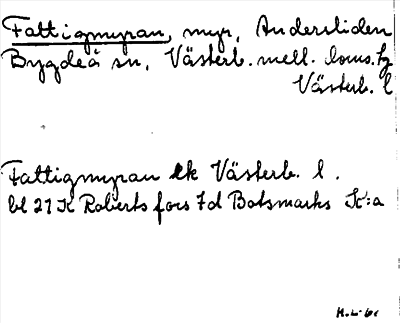 Fattigmyran, myr, Andersliden
Bygdeå sn, Västerb. mell. doms. tg
Västerb. l
Fattigmyran ek Västerb. l.
bl 21 K Robertsfors 7d Botsmarks K:a